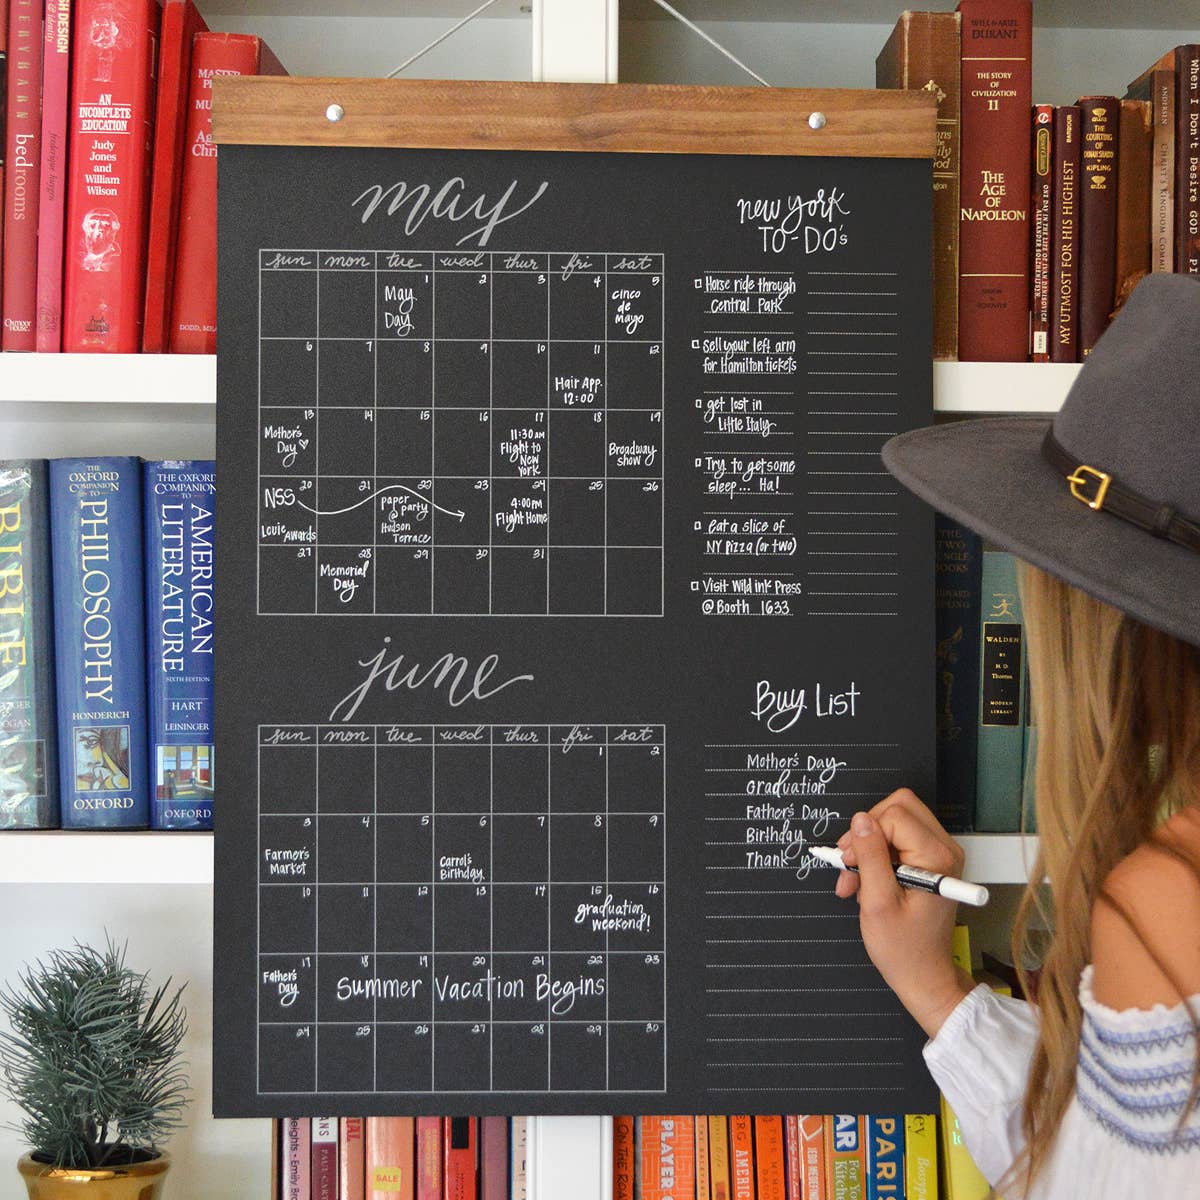 may
sun mon tue wed thur fri sat
1 2 3 4 5
May
Day
cinco
de
mayo
6 7 8 9 10 11 12
Hair App.
12:00
13 14 15 16 17 18 19
Mother's
Day
11:30 AM
Flight to
New
York
Broadway
show
20 21 22 23 24 25 26
NSS
Louie Awards
paper
party
@
Hudson
Terrace
4:00PM
Flight Home
27 28 29 30 31
Memorial
Day
new york
TO-DO's
Horse ride through
Central Park
Sell your left arm
for Hamilton tickets
get lost in
Little Italy
Try to get some
sleep... Ha!
eat a slice of
NY pizza (or two)
Visit Wild ink Press
@ Booth 1633
june
sun mon tue wed thur fri sat
1 2
3 4 5 6 7 8 9
Farmer's
Market
Carrol's
Birthday
10 11 12 13 14 15 16
graduation
weekend!
17 18 19 20 21 22 23
Father's
Day
Summer Vacation Begins
24 25 26 27 28 29 30
Buy List
Mother's Day
Graduation
Father's Day
Birthday
Thank you
bedrooms
AN
INCOMPLETE
EDUCATION
Judy
Jones
and
William
Wilson
WILL & ARIEL
DURANT
THE STORY
OF
CIVILIZATION
11
THE
AGE
OF
NAPOLEON
SIMON
BARBOUR
MY UTMOST FOR HIS HIGHEST
THE
COURTING
OF
DINAH SHADD
KIPLING
When I Don't Desire GOD
PIPER
BIBLE
THE
OXFORD
COMPANION
TO
PHILOSOPHY
HONDERICH
OXFORD
THE OXFORD
COMPANION
TO
AMERICAN
LITERATURE
SIXTH EDITION
HART
LEININGER
OXFORD
WALDEN
BY
H. D.
Thoreau
MODERN
LIBRARY
SALE
PARIS